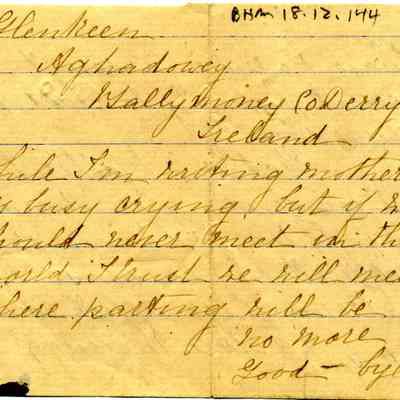 BHM 18.12.144
Glenkeen
Aghadowey
Ballymoney Co Derry
Ireland
hile I'm writing mother
is busy crying but if w
hould never meet in th
orld I trust we will me
here parting will be
no more
Good-bye